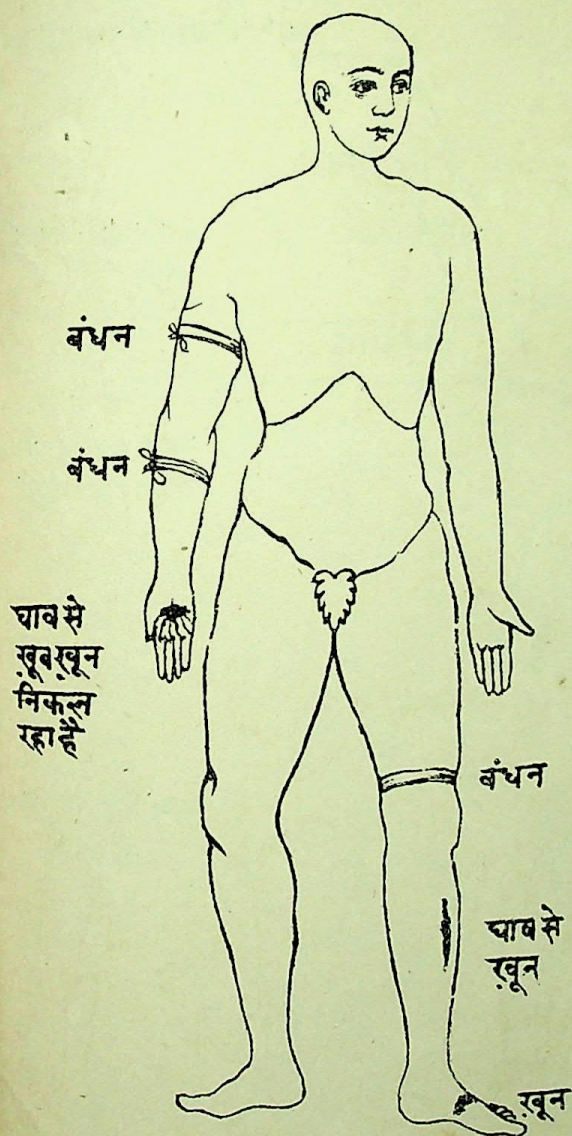 बंधन
बंधन
घाव से
ख़ूब ख़ून
निकल
रहा है
बंधन
घाव से
ख़ून
ख़ून